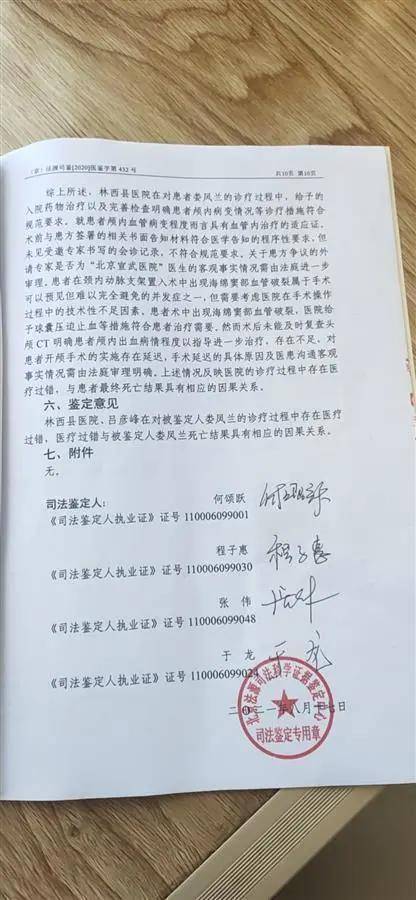 （京）法源司鉴[2020]医鉴字第 432 号 共10页 第10页
综上所述，林西县医院在对患者娄凤兰的诊疗过程中，给予的
入院药物治疗以及完善检查明确患者颅内病变情况等诊疗措施符合
规范要求。就患者颅内血管病变程度而言具有血管内治疗的适应证，
术前与患方签署的相关书面告知材料符合医学告知的程序性要求，但
未见受邀专家书写的会诊记录，不符合规范要求。关于患方争议的外
请专家是否为“北京宣武医院”医生的客观事实情况需由法庭进一步
审理。患者在颈内动脉支架置入术中出现海绵窦部血管破裂属于手术
可以预见但难以完全避免的并发症之一，但需要考虑医院在手术操作
过程中的技术性不足因素。患者术中出现海绵窦部血管破裂，医院给
予球囊压迫止血等措施符合患者治疗需要。然而术后未能及时复查头
颅 CT 明确患者颅内出血病情程度以指导进一步治疗，存在不足，对
患者开颅手术的实施存在延迟，手术延迟的具体原因及医患沟通客观
事实情况需由法庭审理明确。上述情况反映医院的诊疗过程中存在医
疗过错，与患者最终死亡结果具有相应的因果关系。
六、鉴定意见
林西县医院、吕彦峰在对被鉴定人娄凤兰的诊疗过程中存在医疗
过错，医疗过错与被鉴定人娄凤兰死亡结果具有相应的因果关系。
七、附件
无。
司法鉴定人： 何颂跃 何颂跃
《司法鉴定人执业证》证号 110006099001
程子惠 程子惠
《司法鉴定人执业证》证号 110006099030
张 伟 张伟
《司法鉴定人执业证》证号 110006099048
于 龙 于龙
《司法鉴定人执业证》证号 110006099024
北京法源司法科学证据鉴定中心
二〇二一年八月十七日
司法鉴定专用章